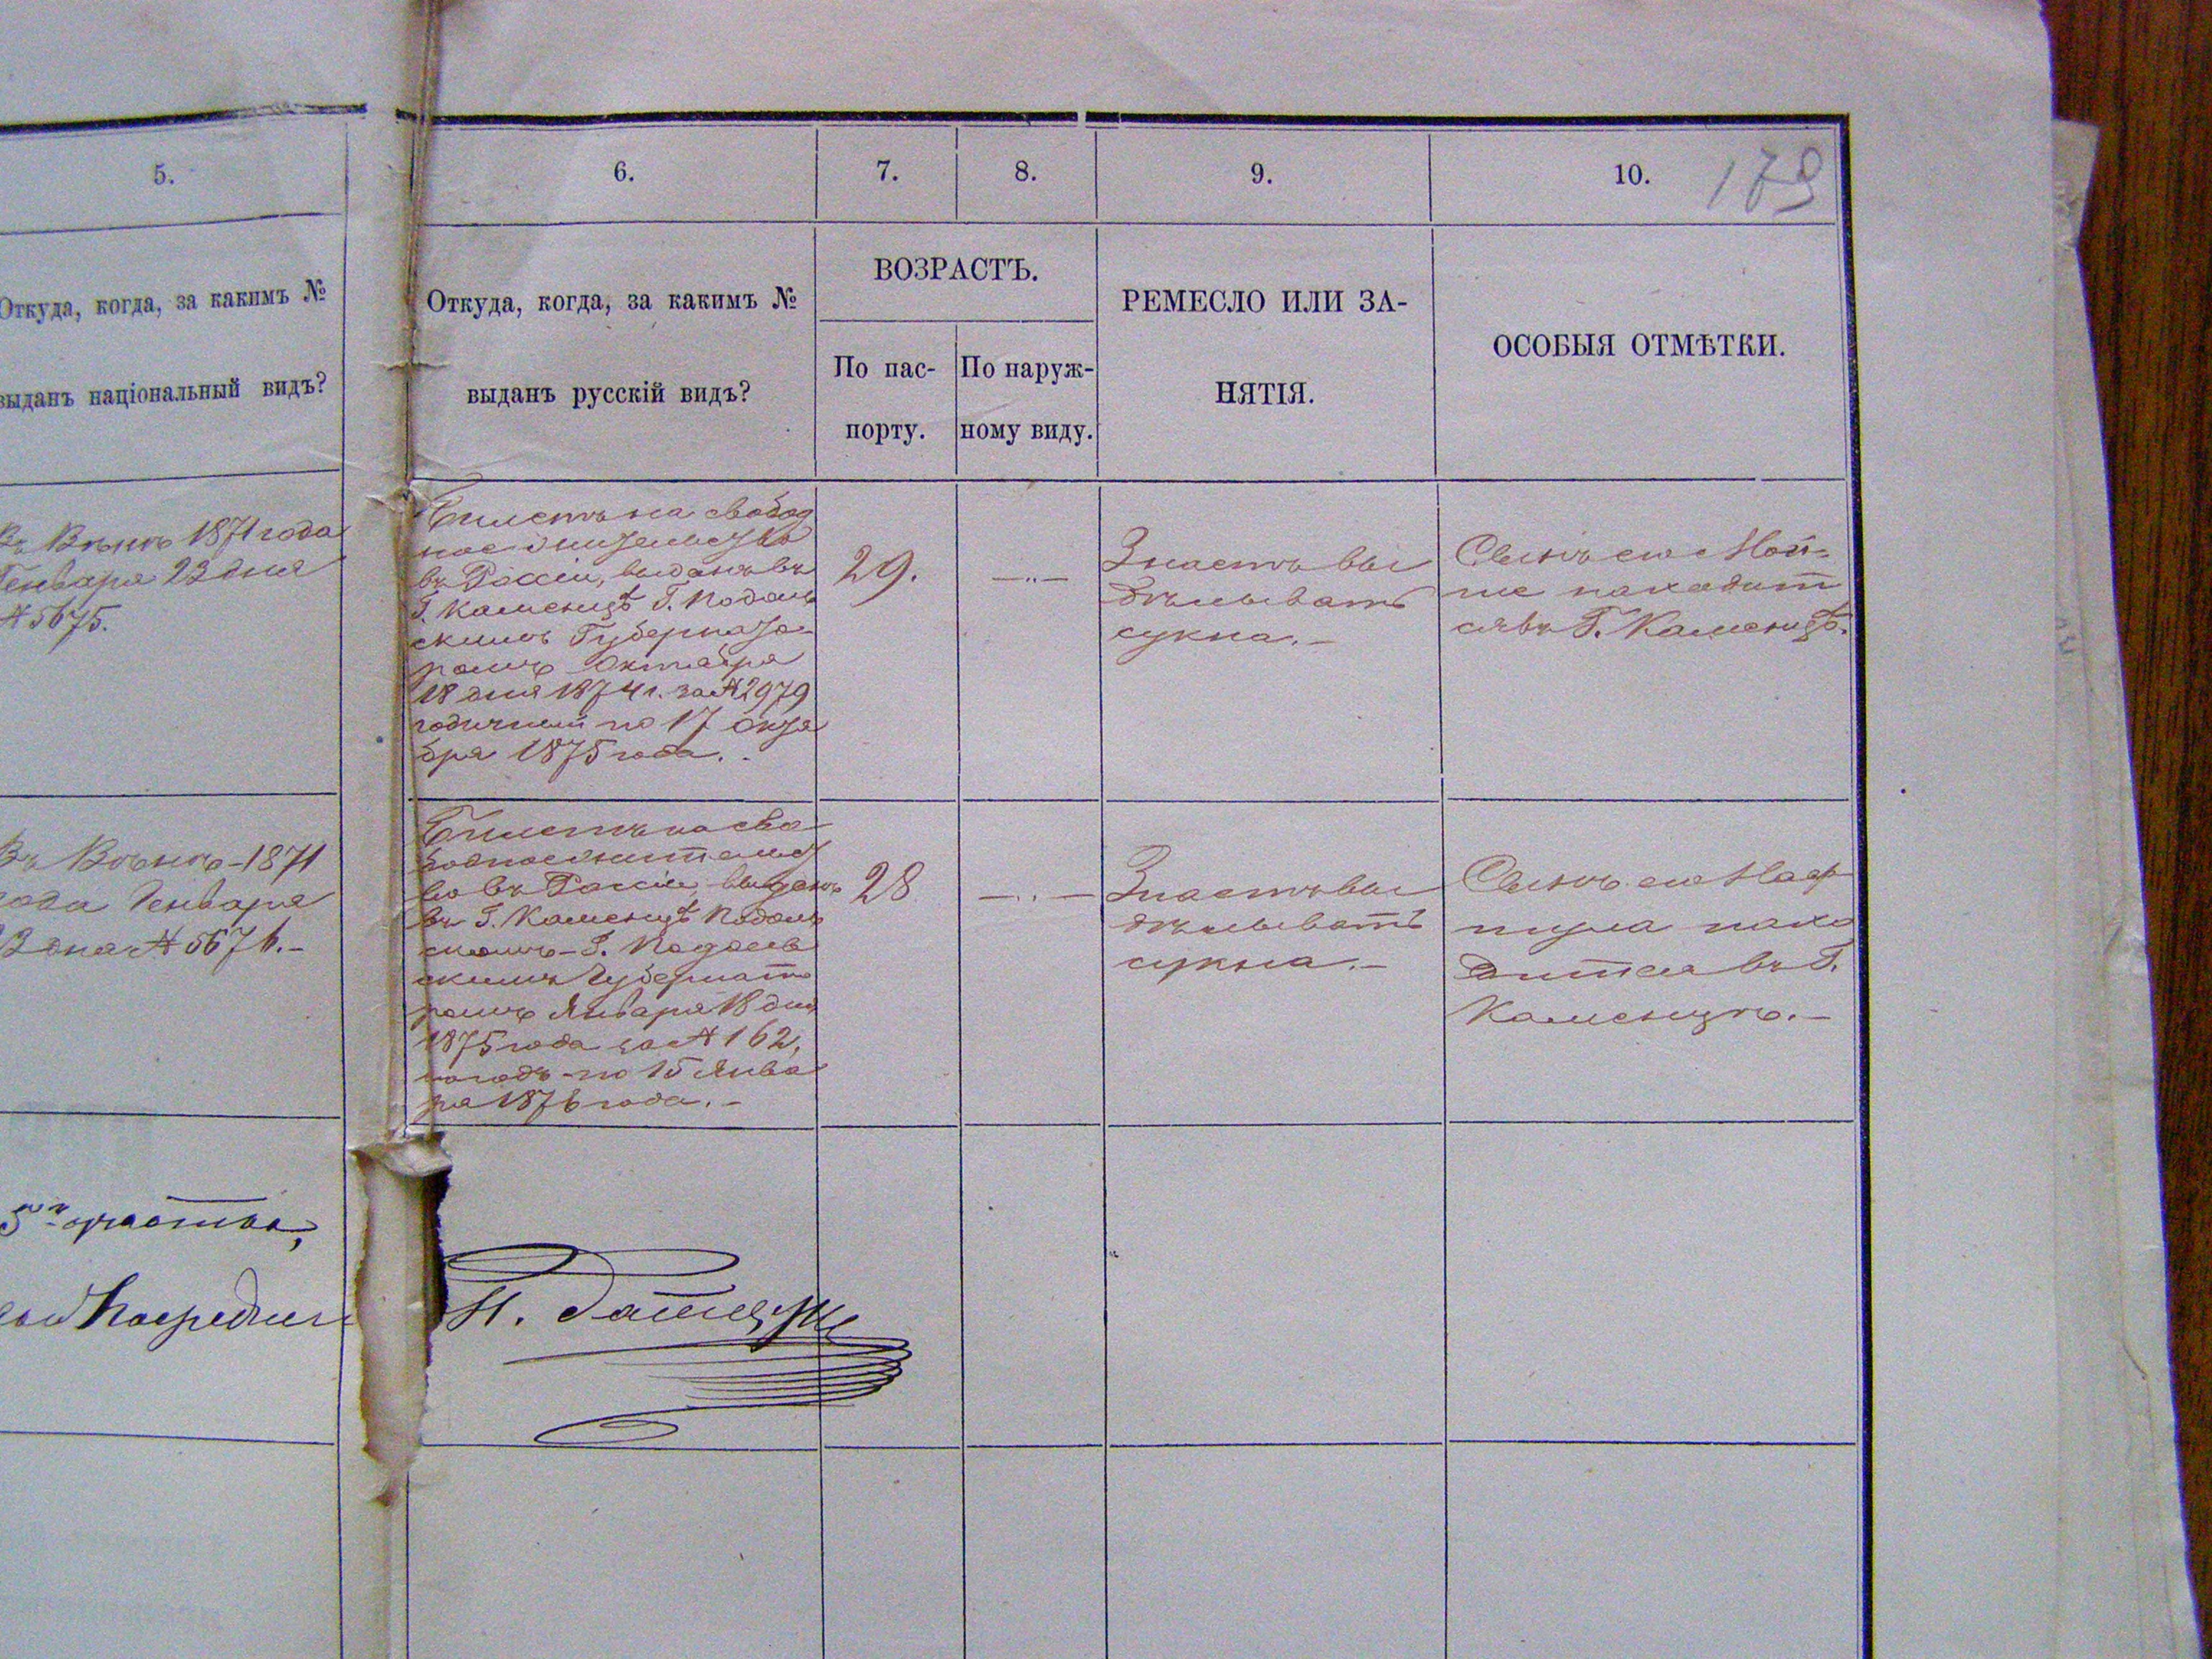 5.
6.
7.
8.
9.
10.
179
Откуда, когда, за какимъ №
выданъ національный видъ?
Откуда, когда, за какимъ №
выданъ русскій видъ?
ВОЗРАСТЪ.
По пас-
порту.
По наруж-
ному виду.
РЕМЕСЛО ИЛИ ЗА-
НЯТІЯ.
ОСОБЫЯ ОТМѢТКИ.
Въ Вѣнѣ 1871 года
Генваря 23 дня
№ 5675.
Билетъ на свобод
ное жительство
въ Россіи, выданъ въ
Г. Каменцѣ Г. Подоль
скимъ Губернато
ромъ Октября
18 дня 1874 г. за № 2979
годичный по 17 октя
бря 1875 года.
29.
Знаетъ вы
дѣлывать
сукна.-
Сынъ его Мой-
ше находит
ся въ Г. Каменцѣ.
Въ Вѣнѣ-1871
года Генваря
23 дня № 5676.-
Билетъ на сво
бодное жительст
во въ Россіи выданъ
въ Г. Каменцѣ Подоль
скомъ-Г. Подоль
скимъ Губернато
ромъ Января 18 дня
1875 года за № 162,
на годъ-по 15 Янва
ря 1876 года.-
28
Знаетъ вы
дѣлывать
сукна.-
Сынъ его
нахо
дится въ Г.
Каменцѣ.-
5го участка,
Посредник
Н.